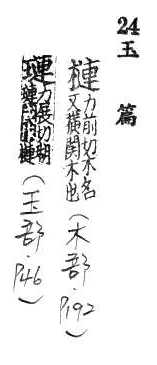 24 玉篇
槤力前切木名又橫關木也(木部·P192)
璉力展切瑚璉(玉部·P46)